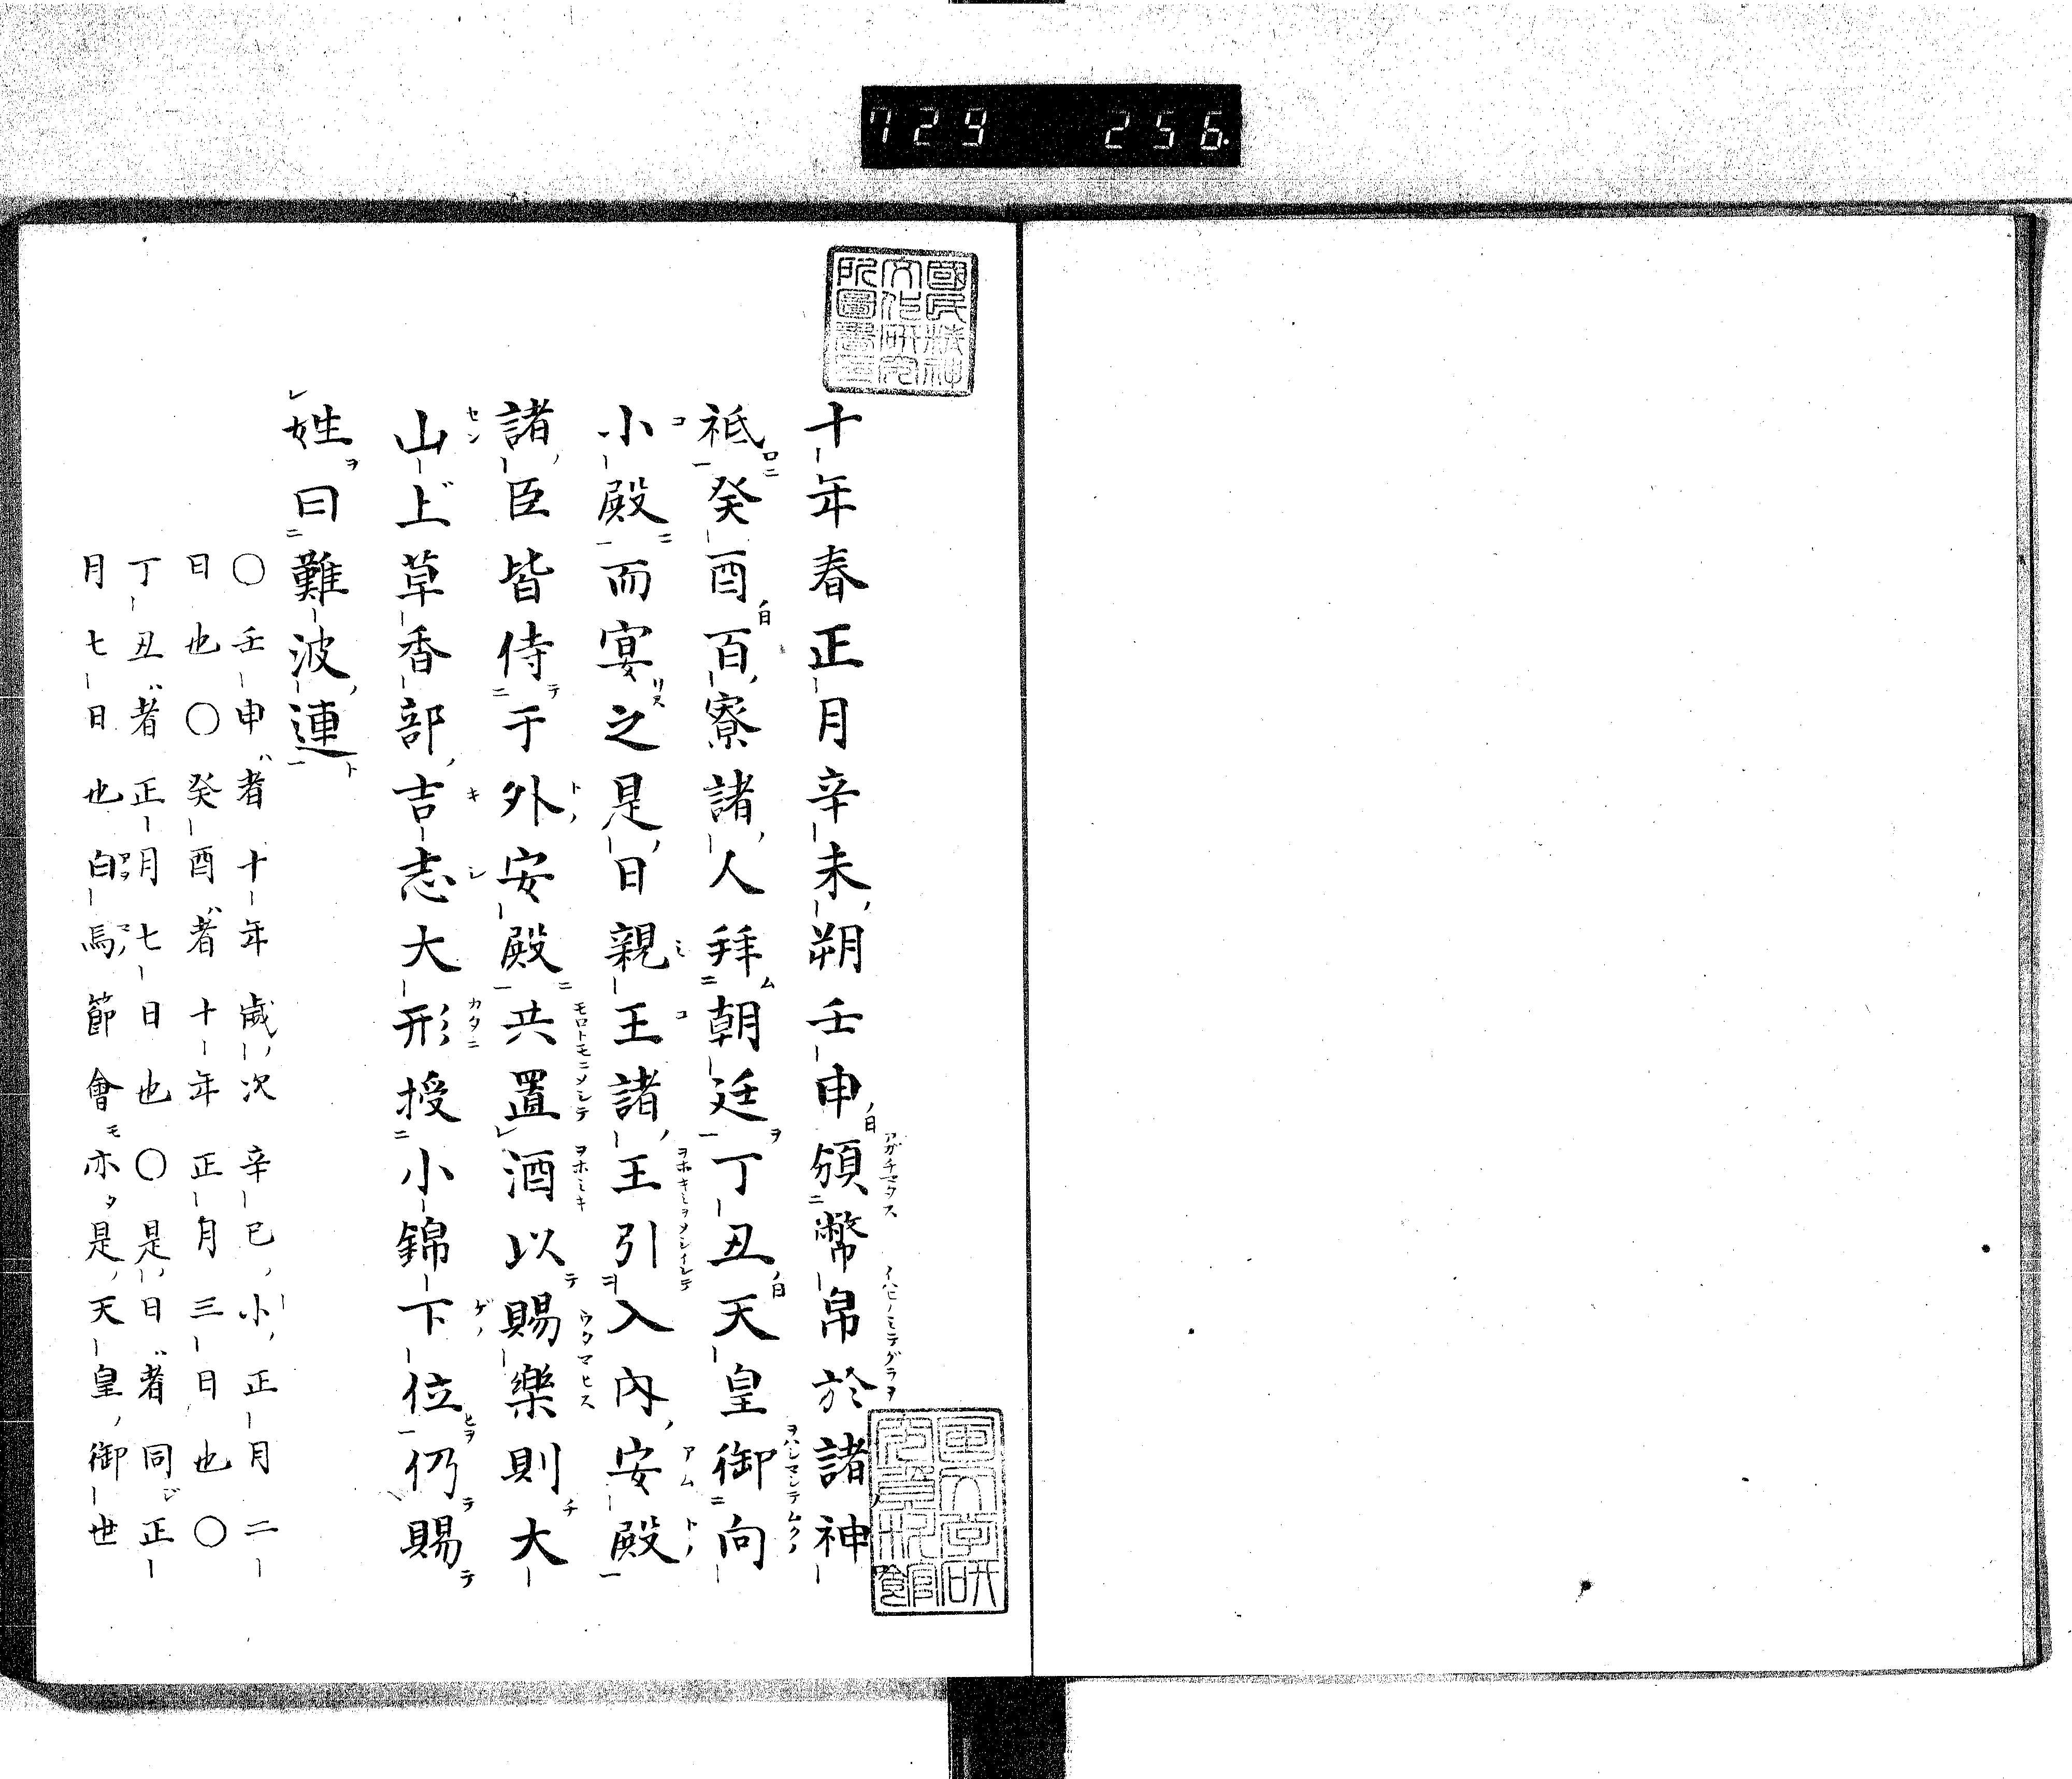 729 256
十年春正月辛未朔壬申頒幣帛於諸神
祗癸酉百寮諸人拜朝廷丁丑天皇御向
小殿而宴之是日親王諸王引入內安殿
諸臣皆侍于外安殿共置酒以賜樂則大
山上草香部吉志大形授小錦下位仍賜
姓曰難波連
〇壬申者十年歲次辛巳小正月二
日也〇癸酉者十年正月三日也〇
丁丑者正月七日也〇是日者同正
月七日也白馬節會亦是天皇御世